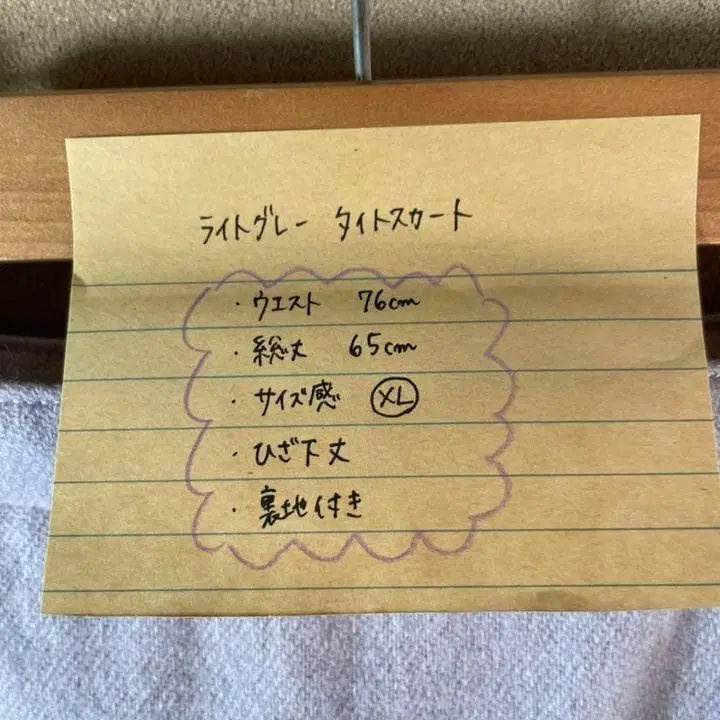 ライトグレー タイトスカート
・ウエスト 76cm
・総丈 65cm
・サイズ感 XL
・ひざ下丈
・裏地付き